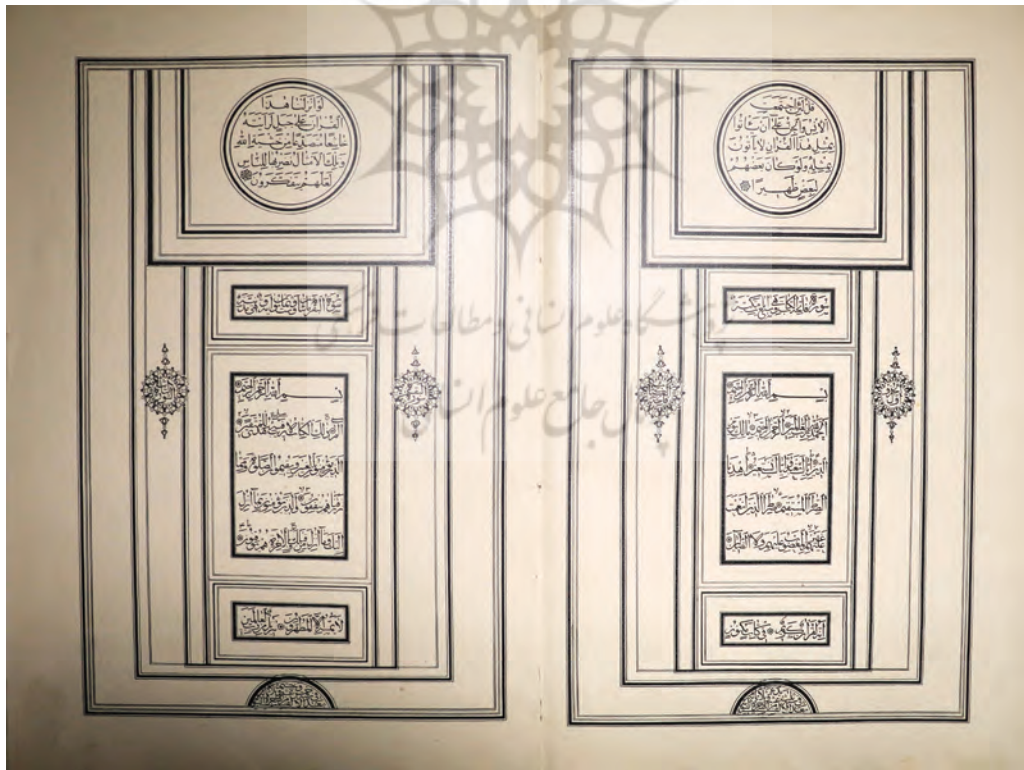 قل لئن اجتمعت
الانس والجن على ان يأتوا
بمثل هذا القرآن لا يأتون
بمثله ولو كان بعضهم
لبعض ظهيرا
سورة فاتحة الكتاب
بسم الله الرحمن الرحيم
الحمد لله رب العالمين الرحمن الرحيم مالك يوم
الدين اياك نعبد واياك نستعين اهدنا
الصراط المستقيم صراط الذين انعمت
عليهم غير المغضوب عليهم ولا الضالين
انه لقرآن كريم في كتاب مكنون
لو انزلنا هذا
القرآن على جبل لرأيته
خاشعا متصدعا من خشية الله
وتلك الامثال نضربها للناس
لعلهم يتفكرون
سورة البقرة
بسم الله الرحمن الرحيم
الم ذلك الكتاب لا ريب فيه هدى للمتقين
الذين يؤمنون بالغيب ويقيمون الصلوة ومما
رزقناهم ينفقون والذين يؤمنون بما انزل
اليك وما انزل من قبلك وبالآخرة هم يوقنون
لا يمسه الا المطهرون تنزيل من رب العالمين
پژوهشگاه علوم انسانی و مطالعات فرهنگی
پرتال جامع علوم انسانی